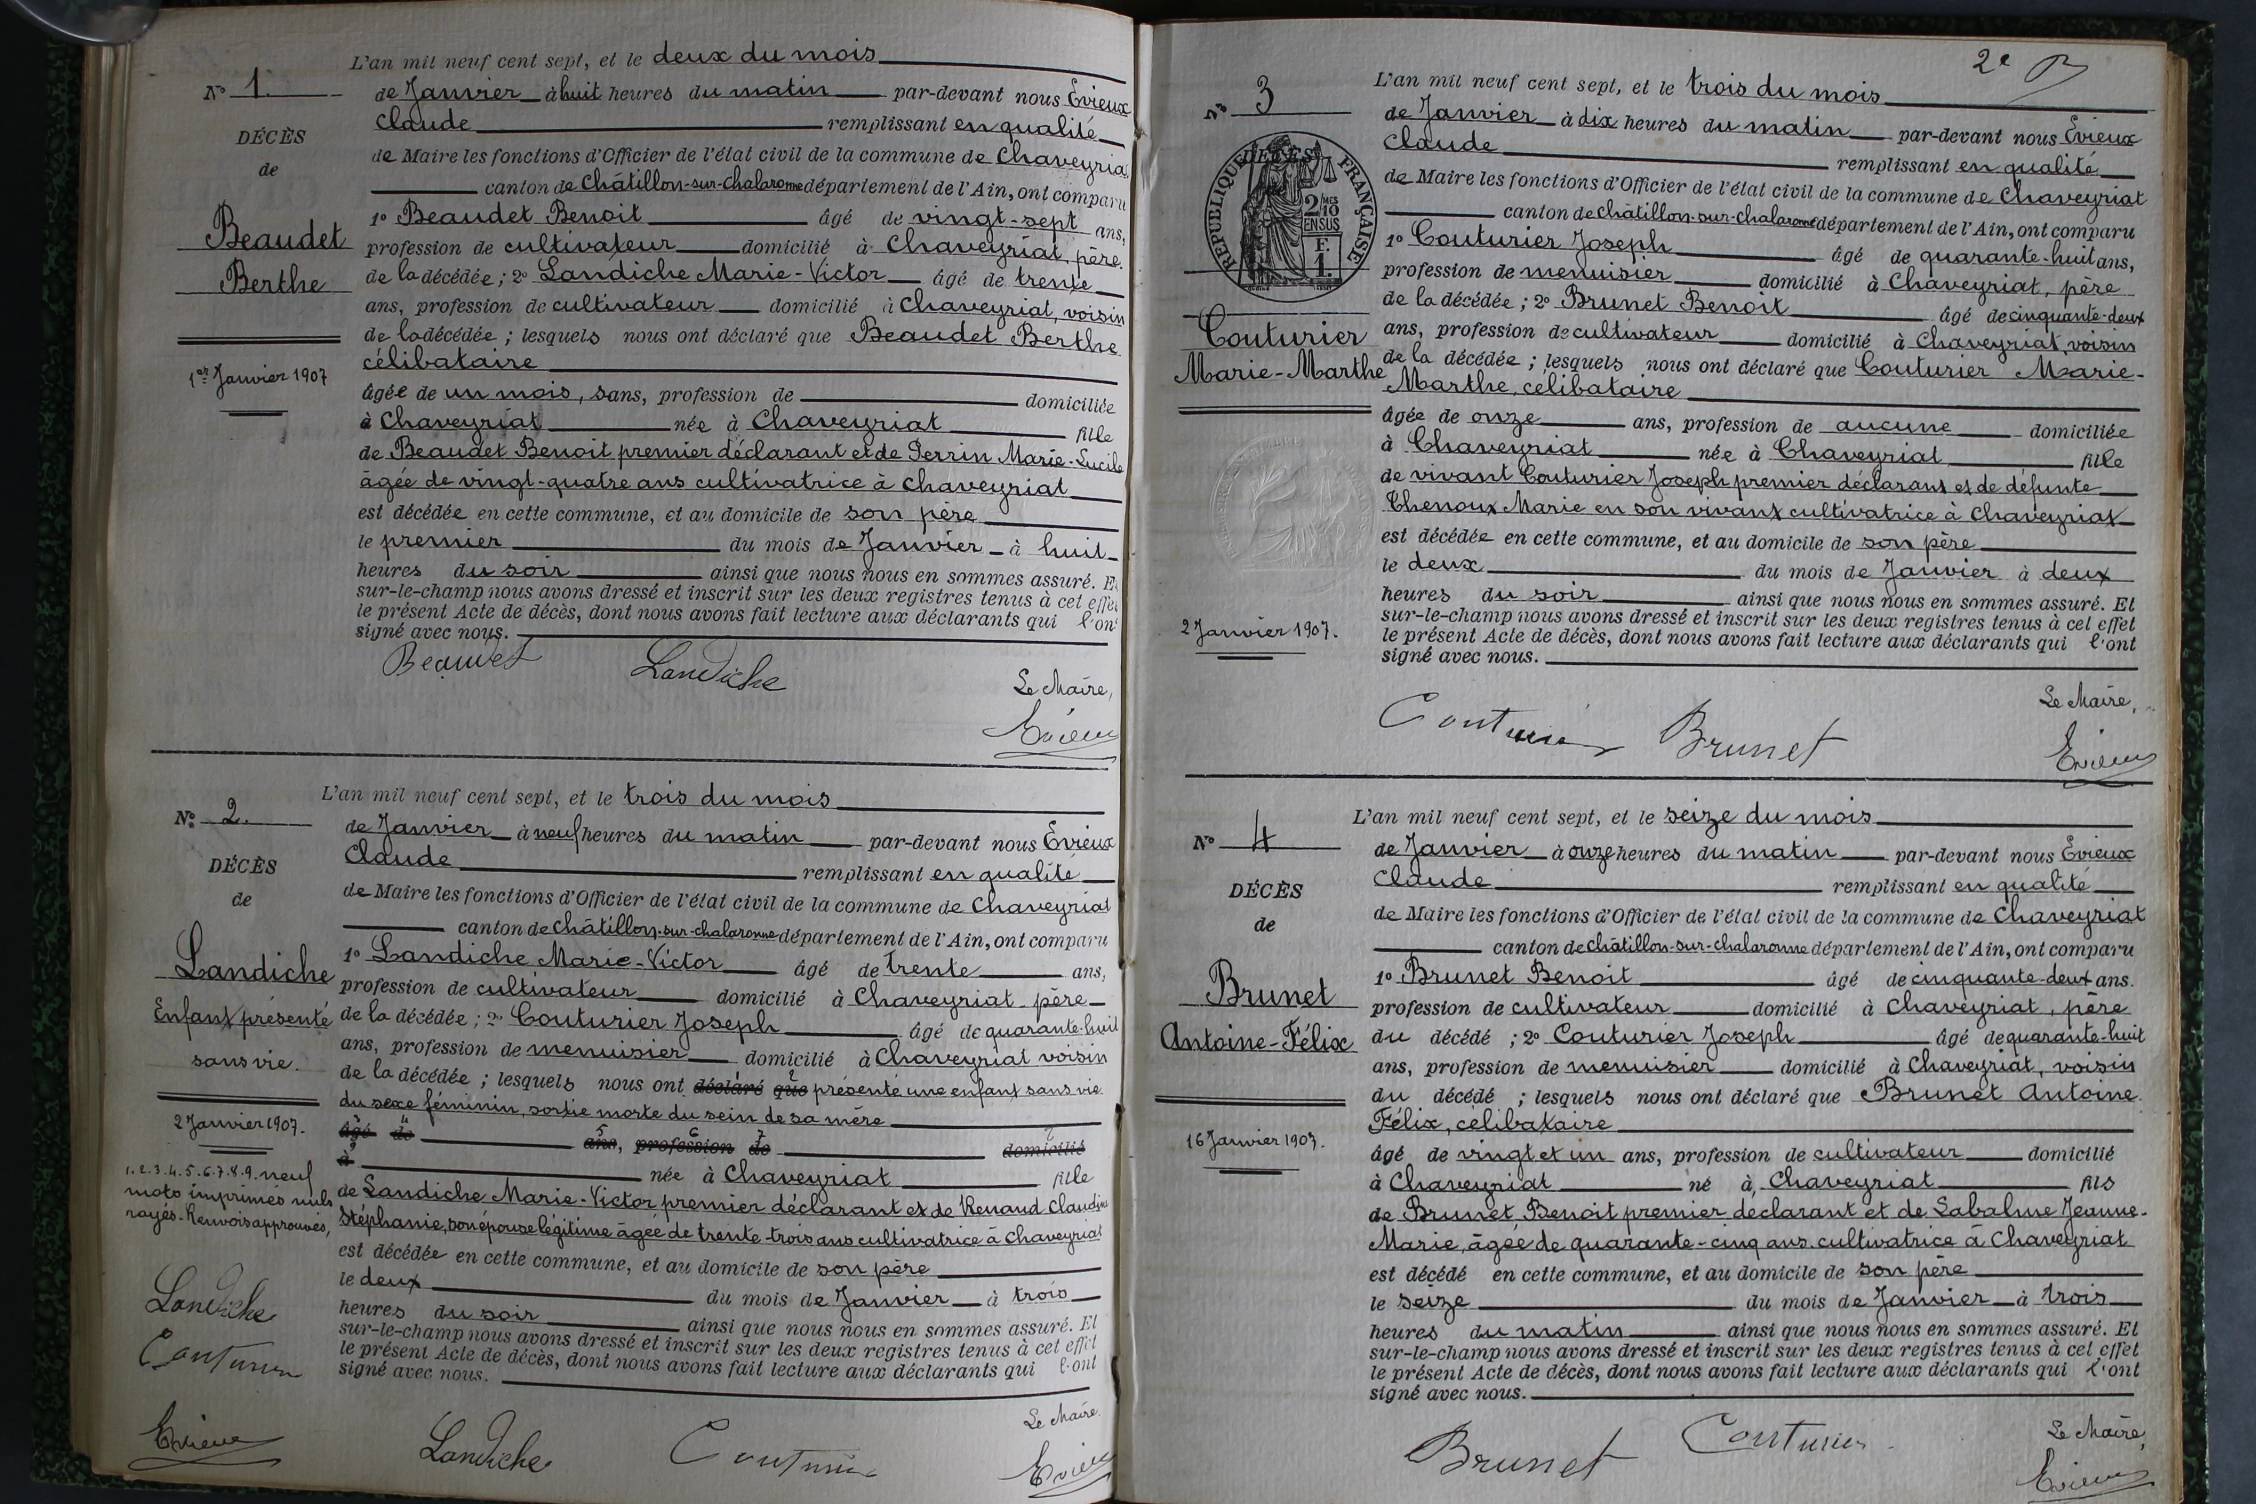 L'an mil neuf cent sept, et le deux du mois
N° 1.
de Janvier à huit heures du matin par-devant nous Evieux
Claude remplissant en qualité
DÉCÈS
de Maire les fonctions d'Officier de l'état civil de la commune de Chaveyriat
de
canton de Châtillon-sur-Chalaronne département de l'Ain, ont comparu
1° Beaudet Benoit âgé de vingt-sept ans,
Beaudet
profession de cultivateur domicilié à Chaveyriat, père
Berthe
de la décédée ; 2° Landiche Marie-Victor âgé de trente
ans, profession de cultivateur domicilié à Chaveyriat, voisin
de la décédée ; lesquels nous ont déclaré que Beaudet Berthe
célibataire
1er Janvier 1907
âgée de un mois, sans, profession de domiciliée
à Chaveyriat née à Chaveyriat fille
de Beaudet Benoit premier déclarant et de Perrin Marie-Lucile
âgée de vingt-quatre ans cultivatrice à Chaveyriat
est décédée en cette commune, et au domicile de son père
le premier du mois de Janvier à huit
heures du soir ainsi que nous nous en sommes assuré. Et
sur-le-champ nous avons dressé et inscrit sur les deux registres tenus à cet effet
le présent Acte de décès, dont nous avons fait lecture aux déclarants qui l'ont
signé avec nous.
Beaudet Landiche
Le Maire,
Evieux
L'an mil neuf cent sept, et le trois du mois
N° 2.
de Janvier à neuf heures du matin par-devant nous Evieux
Claude remplissant en qualité
DÉCÈS
de Maire les fonctions d'Officier de l'état civil de la commune de Chaveyriat
de
canton de Châtillon-sur-Chalaronne département de l'Ain, ont comparu
1° Landiche Marie-Victor âgé de trente ans,
Landiche
profession de cultivateur domicilié à Chaveyriat père
Enfant présenté
de la décédée ; 2° Couturier Joseph âgé de quarante-huit
sans vie.
ans, profession de menuisier domicilié à Chaveyriat voisin
de la décédée ; lesquels nous ont déclaré que présenté une enfant sans vie
du sexe féminin, sortie morte du sein de sa mère
2 Janvier 1907.
âgé de ans, profession de domicilié
à née à Chaveyriat fille
1.2.3.4.5.6.7.8.9. neuf
mots imprimés nuls
rayés. Renvois approuvés,
de Landiche Marie-Victor premier déclarant et de Renaud Claudine
Stéphanie, son épouse légitime âgée de trente-trois ans cultivatrice à Chaveyriat
est décédée en cette commune, et au domicile de son père
le deux du mois de Janvier à trois
heures du soir ainsi que nous nous en sommes assuré. Et
sur-le-champ nous avons dressé et inscrit sur les deux registres tenus à cet effet
le présent Acte de décès, dont nous avons fait lecture aux déclarants qui l'ont
signé avec nous.
Landiche
Couturier
Evieux
Landiche Couturier
Le Maire.
Evieux
2e
L'an mil neuf cent sept, et le trois du mois
N° 3
de Janvier à dix heures du matin par-devant nous Evieux
Claude remplissant en qualité
de Maire les fonctions d'Officier de l'état civil de la commune de Chaveyriat
canton de Châtillon-sur-Chalaronne département de l'Ain, ont comparu
REPUBLIQUE FRANÇAISE
2/10
EN SUS
F.
1.
1° Couturier Joseph âgé de quarante-huit ans,
profession de menuisier domicilié à Chaveyriat, père
de la décédée ; 2° Brunet Benoit âgé de cinquante-deux
Couturier
ans, profession de cultivateur domicilié à Chaveyriat, voisin
Marie-Marthe
de la décédée ; lesquels nous ont déclaré que Couturier Marie-
Marthe, célibataire
âgée de onze ans, profession de aucune domiciliée
à Chaveyriat née à Chaveyriat fille
de vivant Couturier Joseph premier déclarant et de défunte
Thenoux Marie en son vivant cultivatrice à Chaveyriat
est décédée en cette commune, et au domicile de son père
le deux du mois de Janvier à deux
heures du soir ainsi que nous nous en sommes assuré. Et
2 Janvier 1907.
sur-le-champ nous avons dressé et inscrit sur les deux registres tenus à cet effet
le présent Acte de décès, dont nous avons fait lecture aux déclarants qui l'ont
signé avec nous.
Couturier Brunet
Le Maire,
Evieux
L'an mil neuf cent sept, et le seize du mois
N° 4
de Janvier à onze heures du matin par-devant nous Evieux
Claude remplissant en qualité
DÉCÈS
de Maire les fonctions d'Officier de l'état civil de la commune de Chaveyriat
de
canton de Châtillon-sur-Chalaronne département de l'Ain, ont comparu
1° Brunet Benoit âgé de cinquante-deux ans.
Brunet
profession de cultivateur domicilié à Chaveyriat, père
Antoine-Félix
du décédé ; 2° Couturier Joseph âgé de quarante-huit
ans, profession de menuisier domicilié à Chaveyriat, voisin
du décédé ; lesquels nous ont déclaré que Brunet Antoine
Félix, célibataire
16 Janvier 1907.
âgé de vingt et un ans, profession de cultivateur domicilié
à Chaveyriat né à Chaveyriat fils
de Brunet Benoit premier déclarant et de Labalme Jeanne-
Marie, âgée de quarante-cinq ans cultivatrice à Chaveyriat
est décédé en cette commune, et au domicile de son père
le seize du mois de Janvier à trois
heures du matin ainsi que nous nous en sommes assuré. Et
sur-le-champ nous avons dressé et inscrit sur les deux registres tenus à cet effet
le présent Acte de décès, dont nous avons fait lecture aux déclarants qui l'ont
signé avec nous.
Brunet Couturier
Le Maire,
Evieux